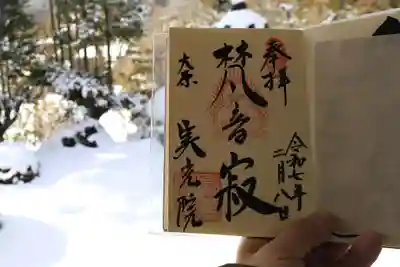 奉拝
令和七年
二月八日
梵音寂
大原
実光院